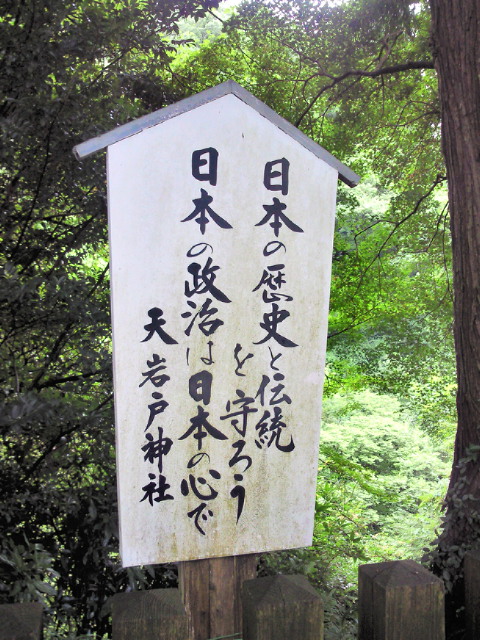 日本の歴史と伝統
を守ろう
日本の政治は日本の心で
天岩戸神社